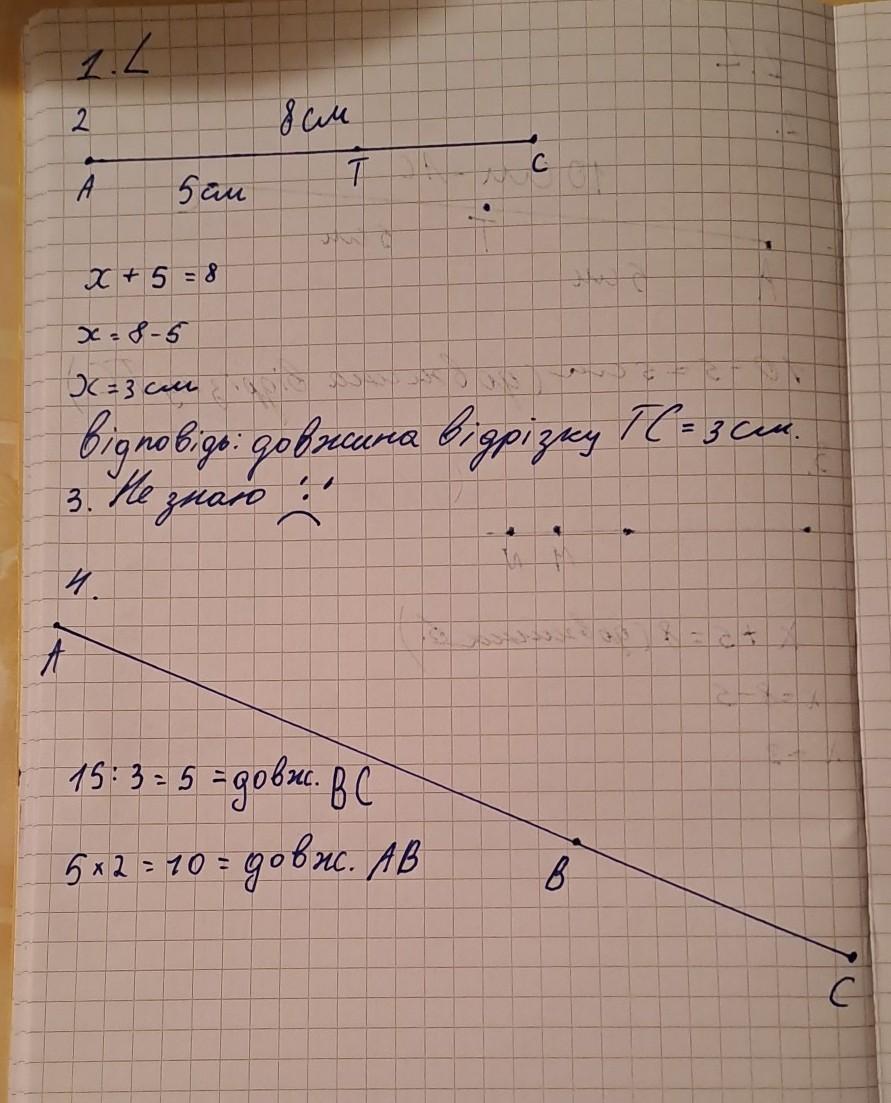 1. L
2
8 см
A T C
5 см
x + 5 = 8
x = 8 - 5
x = 3 см
Відповідь: довжина відрізку TC = 3 см.
3. Не знаю
4.
A
15 : 3 = 5 = довж. BC
5 × 2 = 10 = довж. AB
B
C